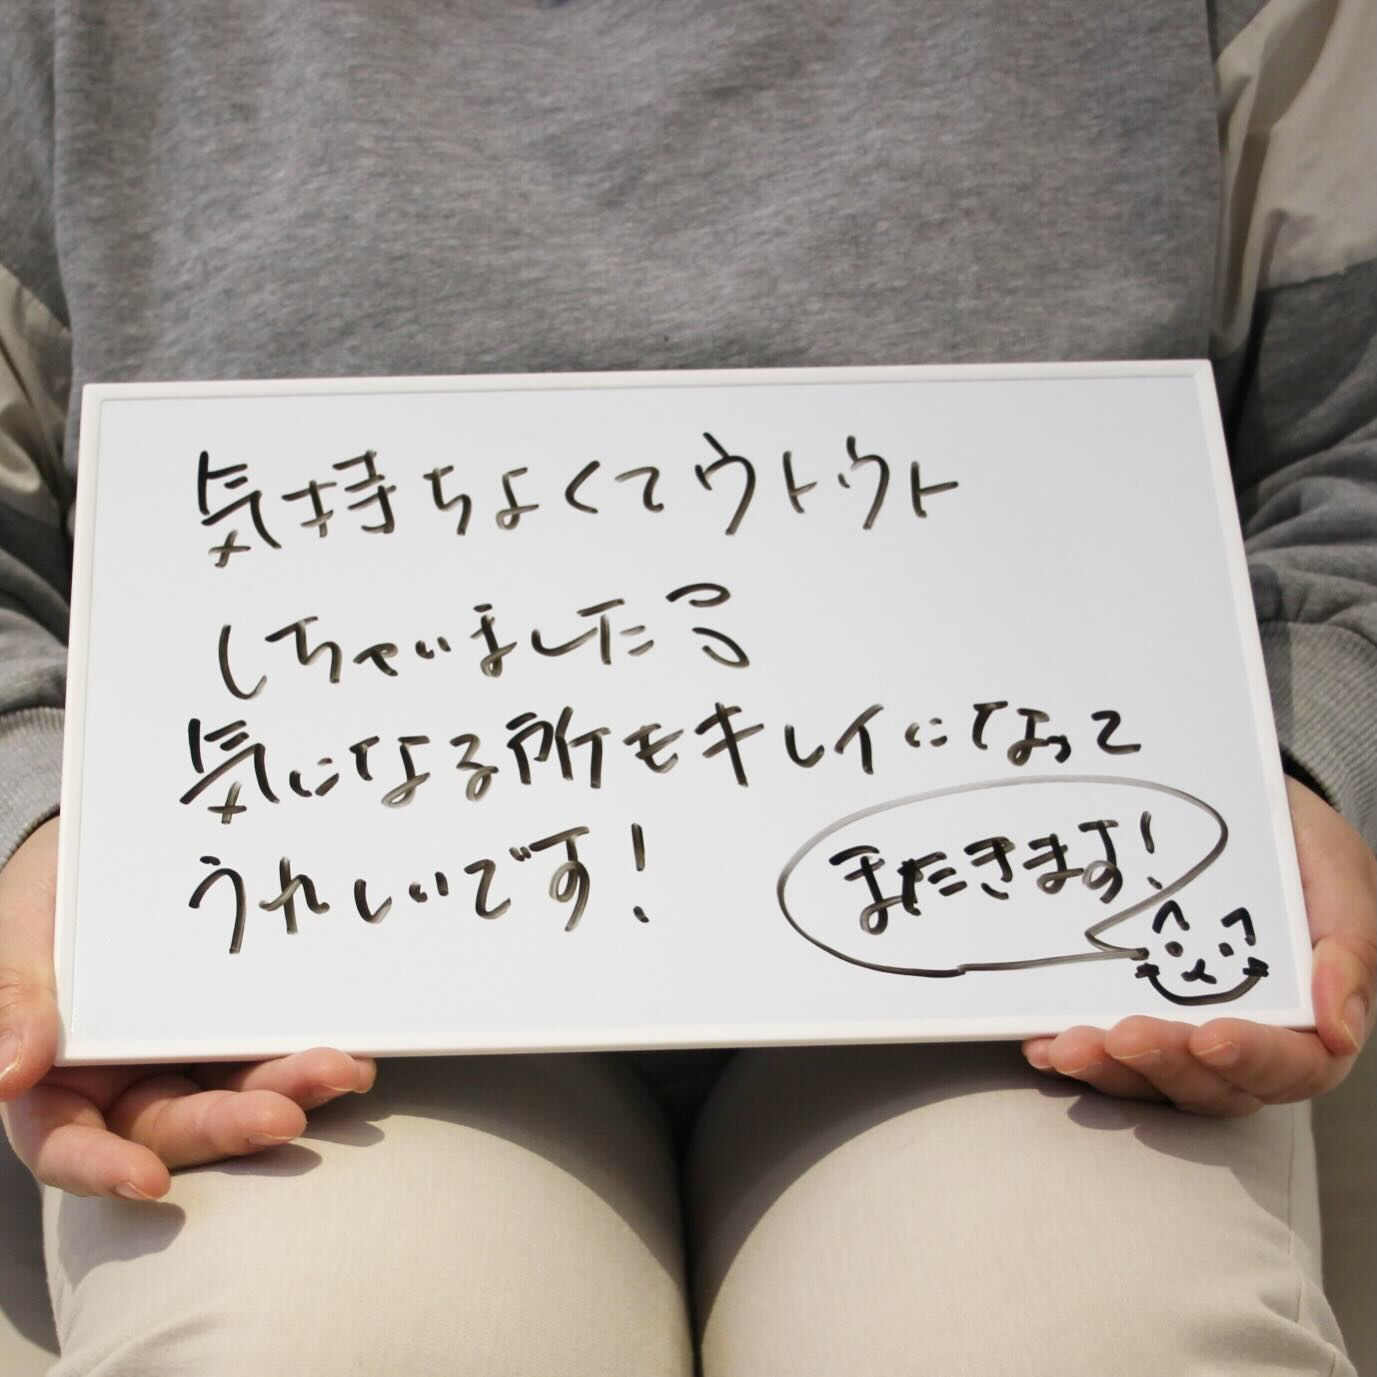 気持ちよくてウトウト
しちゃいました
気になる所もキレイになって
うれしいです!
またきます!